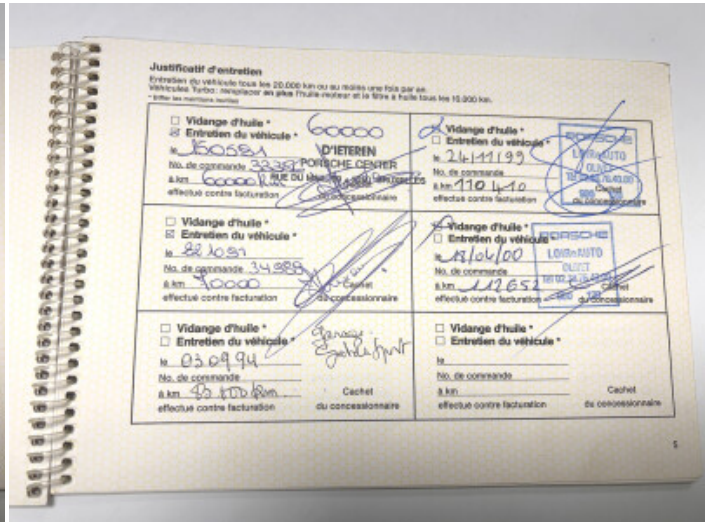 Justificatif d'entretien
Entretien du véhicule tous les 20.000 km ou au moins une fois par an.
Véhicules Turbo: remplacer en plus l'huile-moteur et le filtre à huile tous les 10.000 km.
* Biffer les mentions inutiles
Vidange d'huile *
Entretien du véhicule *
60000
le 160591
D'IETEREN
No. de commande
PORSCHE CENTER
RUE DU
à km 60000 km
effectué contre facturation
Vidange d'huile *
Entretien du véhicule *
le 24/11/99
No. de commande
à km 110 410
effectué contre facturation
PORSCHE
LOIRE AUTO
OLIVET
Cachet
du concessionnaire
Vidange d'huile *
Entretien du véhicule *
le 221091
No. de commande 34989
à km 70000
Cachet
effectué contre facturation
du concessionnaire
Vidange d'huile *
Entretien du véhicule *
le 18/04/00
No. de commande
à km 112652
effectué contre facturation
PORSCHE
LOIRE AUTO
OLIVET
Cachet
du concessionnaire
Vidange d'huile *
Entretien du véhicule *
Garage
le 030994
No. de commande
à km
Cachet
effectué contre facturation
du concessionnaire
Vidange d'huile *
Entretien du véhicule *
le
No. de commande
à km
Cachet
effectué contre facturation
du concessionnaire
5